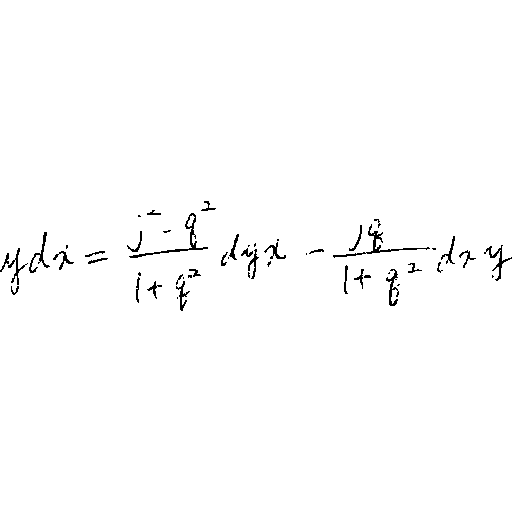 $y d x = \frac{j^{2} - q^{2}}{1 + q^{2}} d y x - \frac{j q}{1 + q^{2}} d x y$